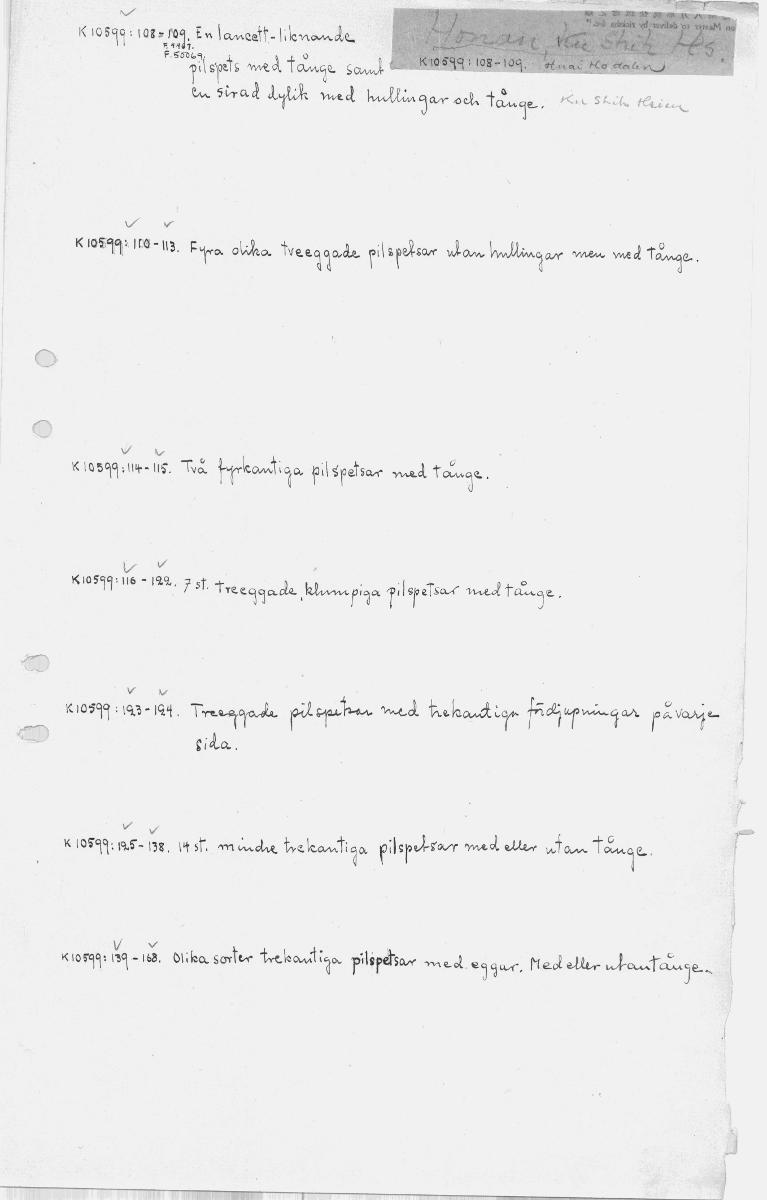 K10599:108-109. En lancett-liknande
pilspets med tånge samt
en sirad dylik med hullingar och tånge. Ku Shih Hsien
Honan, Ku Shih Hs.
K10599:108-109. Huai Ho dalen
K10599:110-113. Fyra olika treeggade pilspetsar utan hullingar men med tånge.
K10599:114-115. Två fyrkantiga pilspetsar med tånge.
K10599:116-122. 7 st. treeggade, klumpiga pilspetsar med tånge.
K10599:123-124. Treeggade pilspetsar med trekantiga fördjupningar på varje
sida.
K10599:125-138. 14 st. mindre trekantiga pilspetsar med eller utan tånge.
K10599:139-168. Olika sorter trekantiga pilspetsar med eggar. Med eller utan tånge.